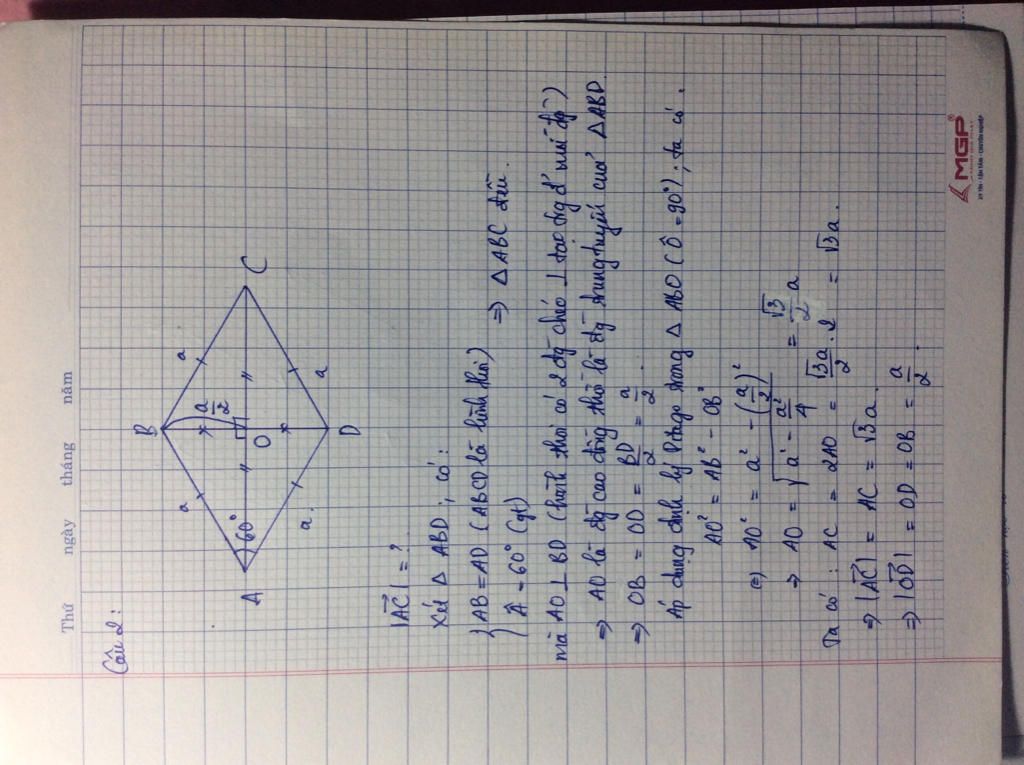 Thứ ngày tháng năm
Câu 2:
B
a
a
a/2
A
60°
O
C
a.
a
D
|AC⃗| = ?
Xét Δ ABD, có:
{ AB = AD (ABCD là hình thoi)
Â = 60° (gt)
=> Δ ABC đều.
mà AO ⊥ BD (hình thoi có 2 đg chéo ⊥ tại
=> AO là đg cao đồng thời là đg trung tuyến của Δ ABD.
=> OB = OD = BD/2 = a/2.
Áp dụng định lý Pitago trong Δ ABO (Ô = 90°); ta có.
AO² = AB² - OB²
(=) AO² = a² - (a/2)²
=> AO = √(a² - a²/4) = √3/2 a
Ta có: AC = 2AO = √3a/2 . 2 = √3a.
=> |AC⃗| = AC = √3a.
=> |OD⃗| = OD = OB = a/2.
MGP®
UY TÍN - TẬN TÂM - CHUYÊN NGHIỆP